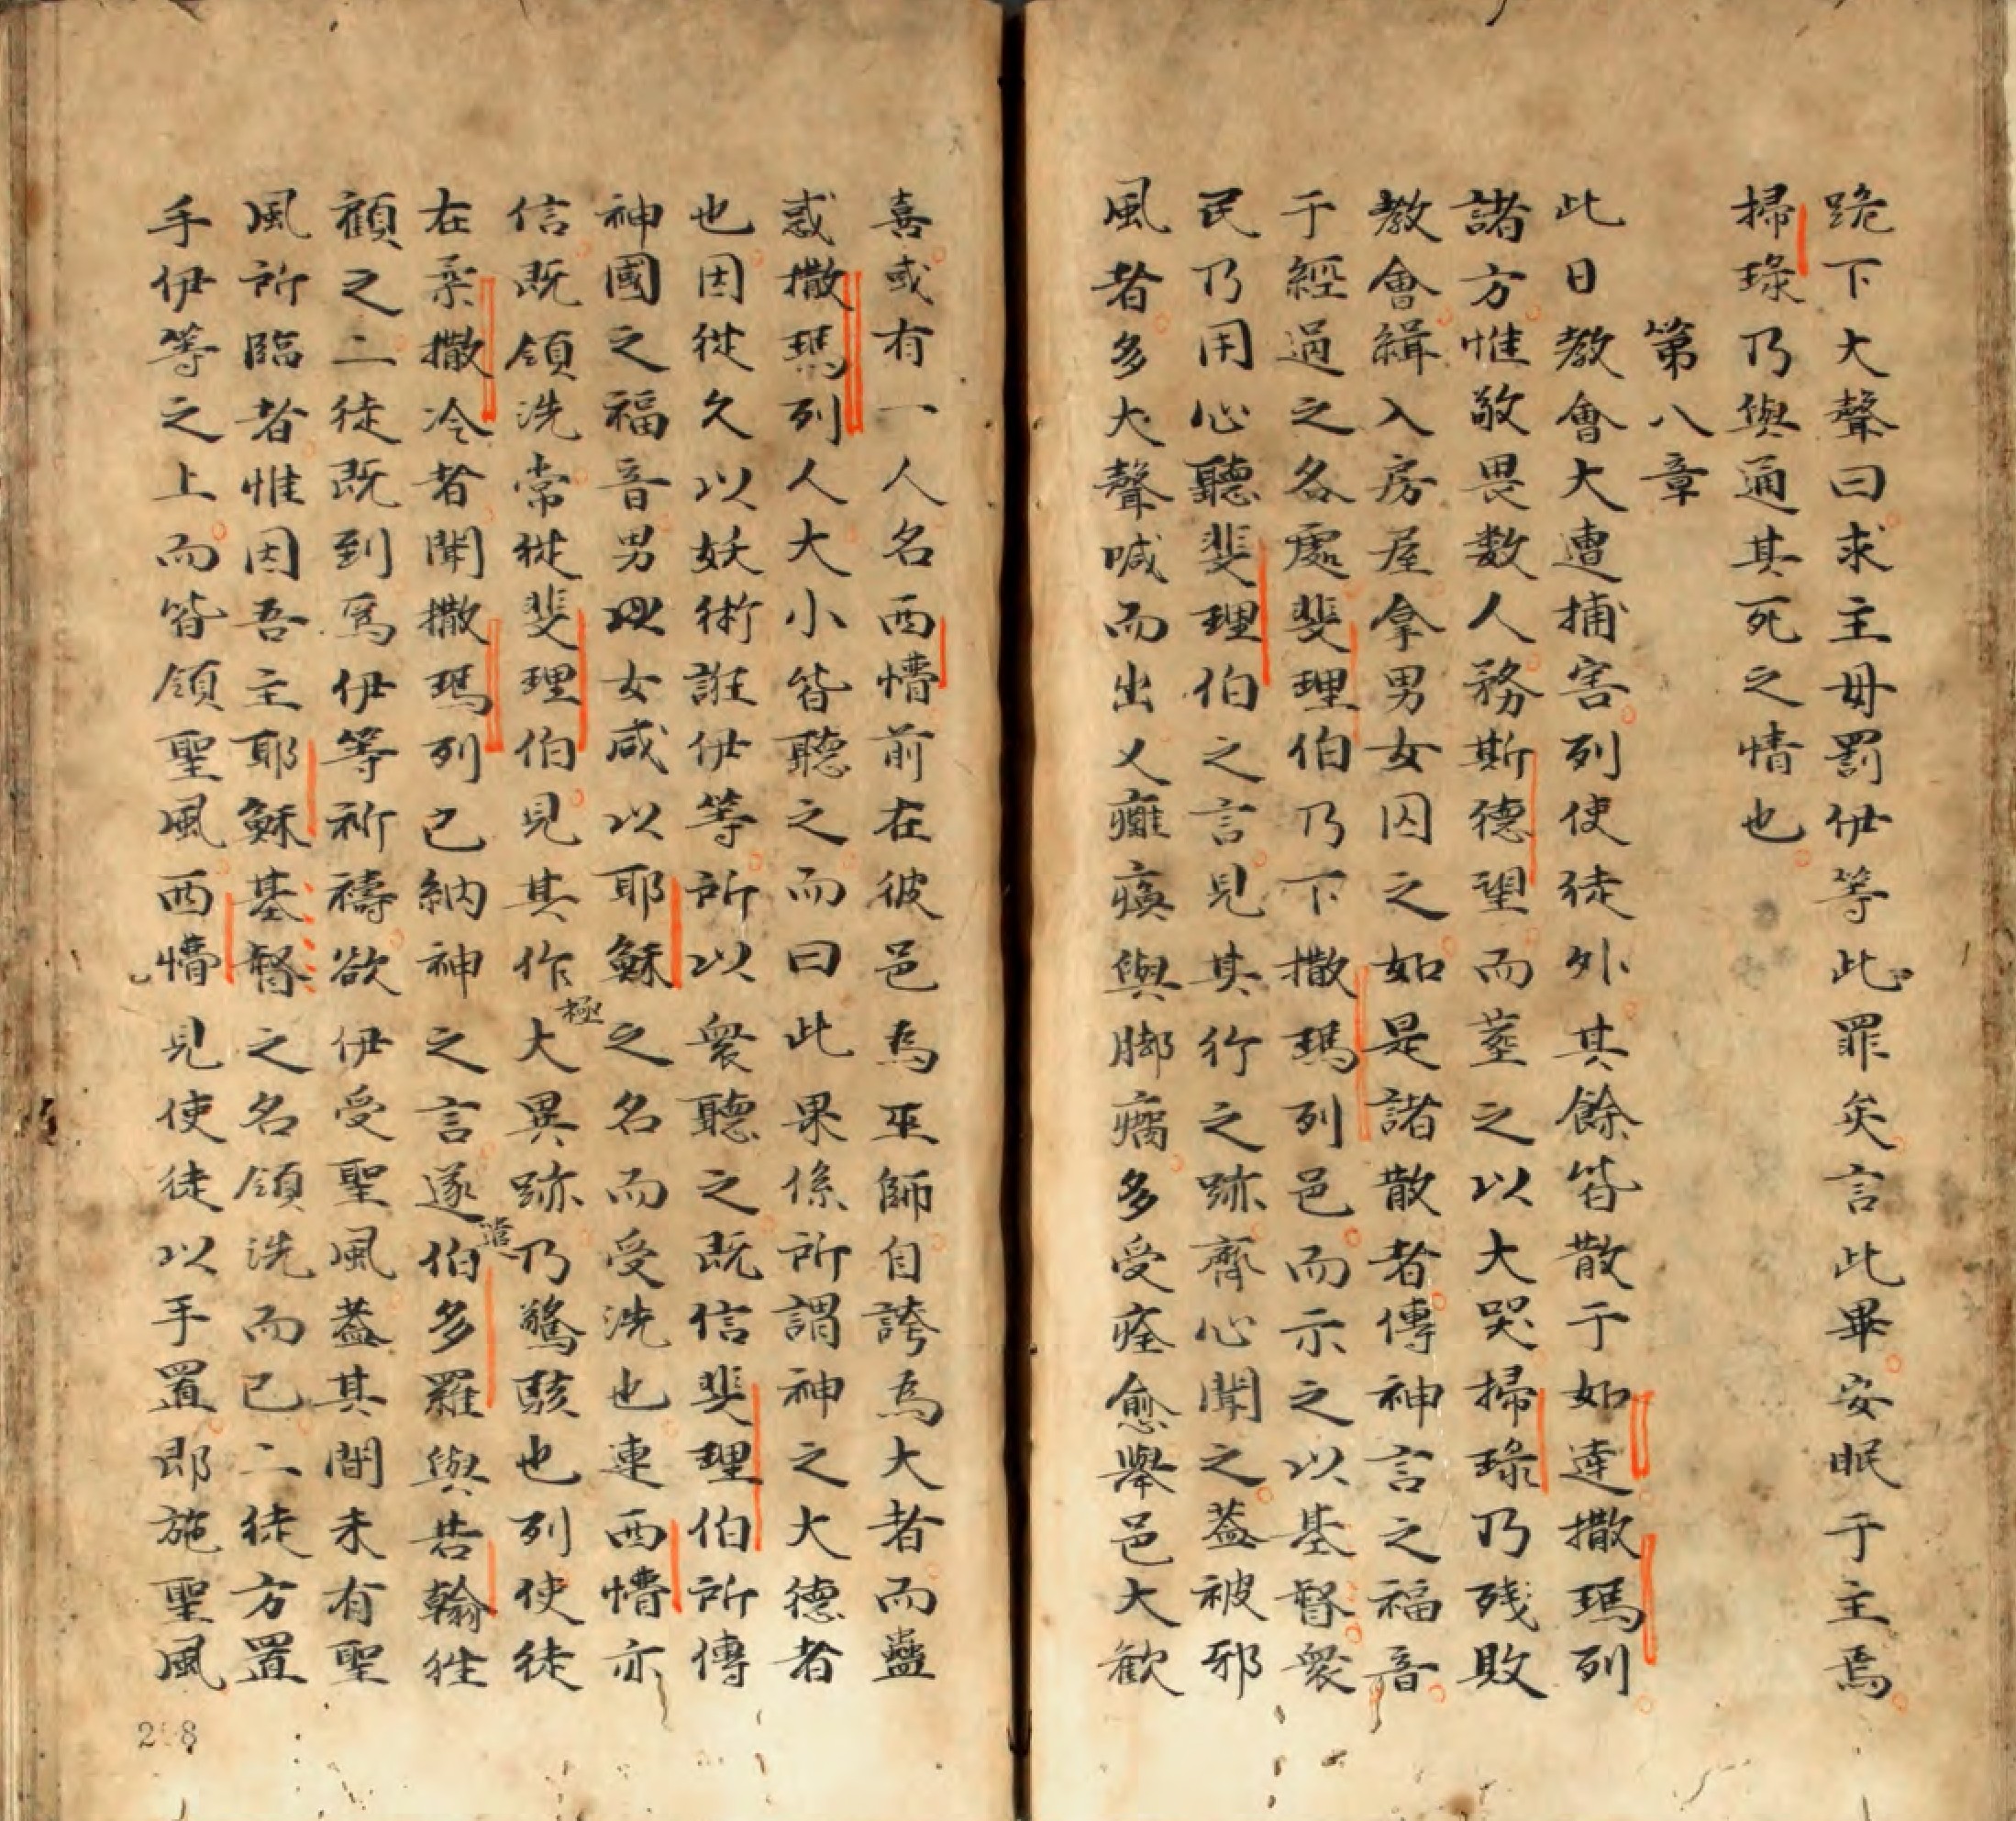 跪下大聲曰求主毋罰伊等此罪矣言此畢安眠于主焉
掃琭乃與通其死之情也
第八章
此日教會大遭捕害列使徒外其餘皆散于如達撒瑪列
諸方惟敬畏数人務斯德望而塟之以大哭掃琭乃残敗
教會緝入房屋拿男女囚之如是諸散者傳神言之福音
于經過之各處斐理伯乃下撒瑪列邑而示之以基督衆
民乃用心聽斐理伯之言見其行之跡齊心聞之葢被邪
風者多大聲喊而出又癱瘓與脚癟多受痊愈舉邑大歡
喜或有一人名西懵前在彼邑為巫師自誇為大者而蠱
惑撒瑪列人大小皆聽之而曰此果係所謂神之大德者
也因從久以妖術誑伊等所以衆聽之既信斐理伯所傳
神國之福音男以女咸以耶穌之名而受洗也連西懵亦
信既領洗常從斐理伯見其作極大異跡乃驚駭也列使徒
在柔撒冷者聞撒瑪列已納神之言遂遣伯多羅與若翰往
顧之二徒既到為伊等祈禱欲伊受聖風葢其間未有聖
風所臨者惟因吾主耶穌基督之名領洗而已二徒方置
手伊等之上而皆領聖風西懵見使徒以手置即施聖風